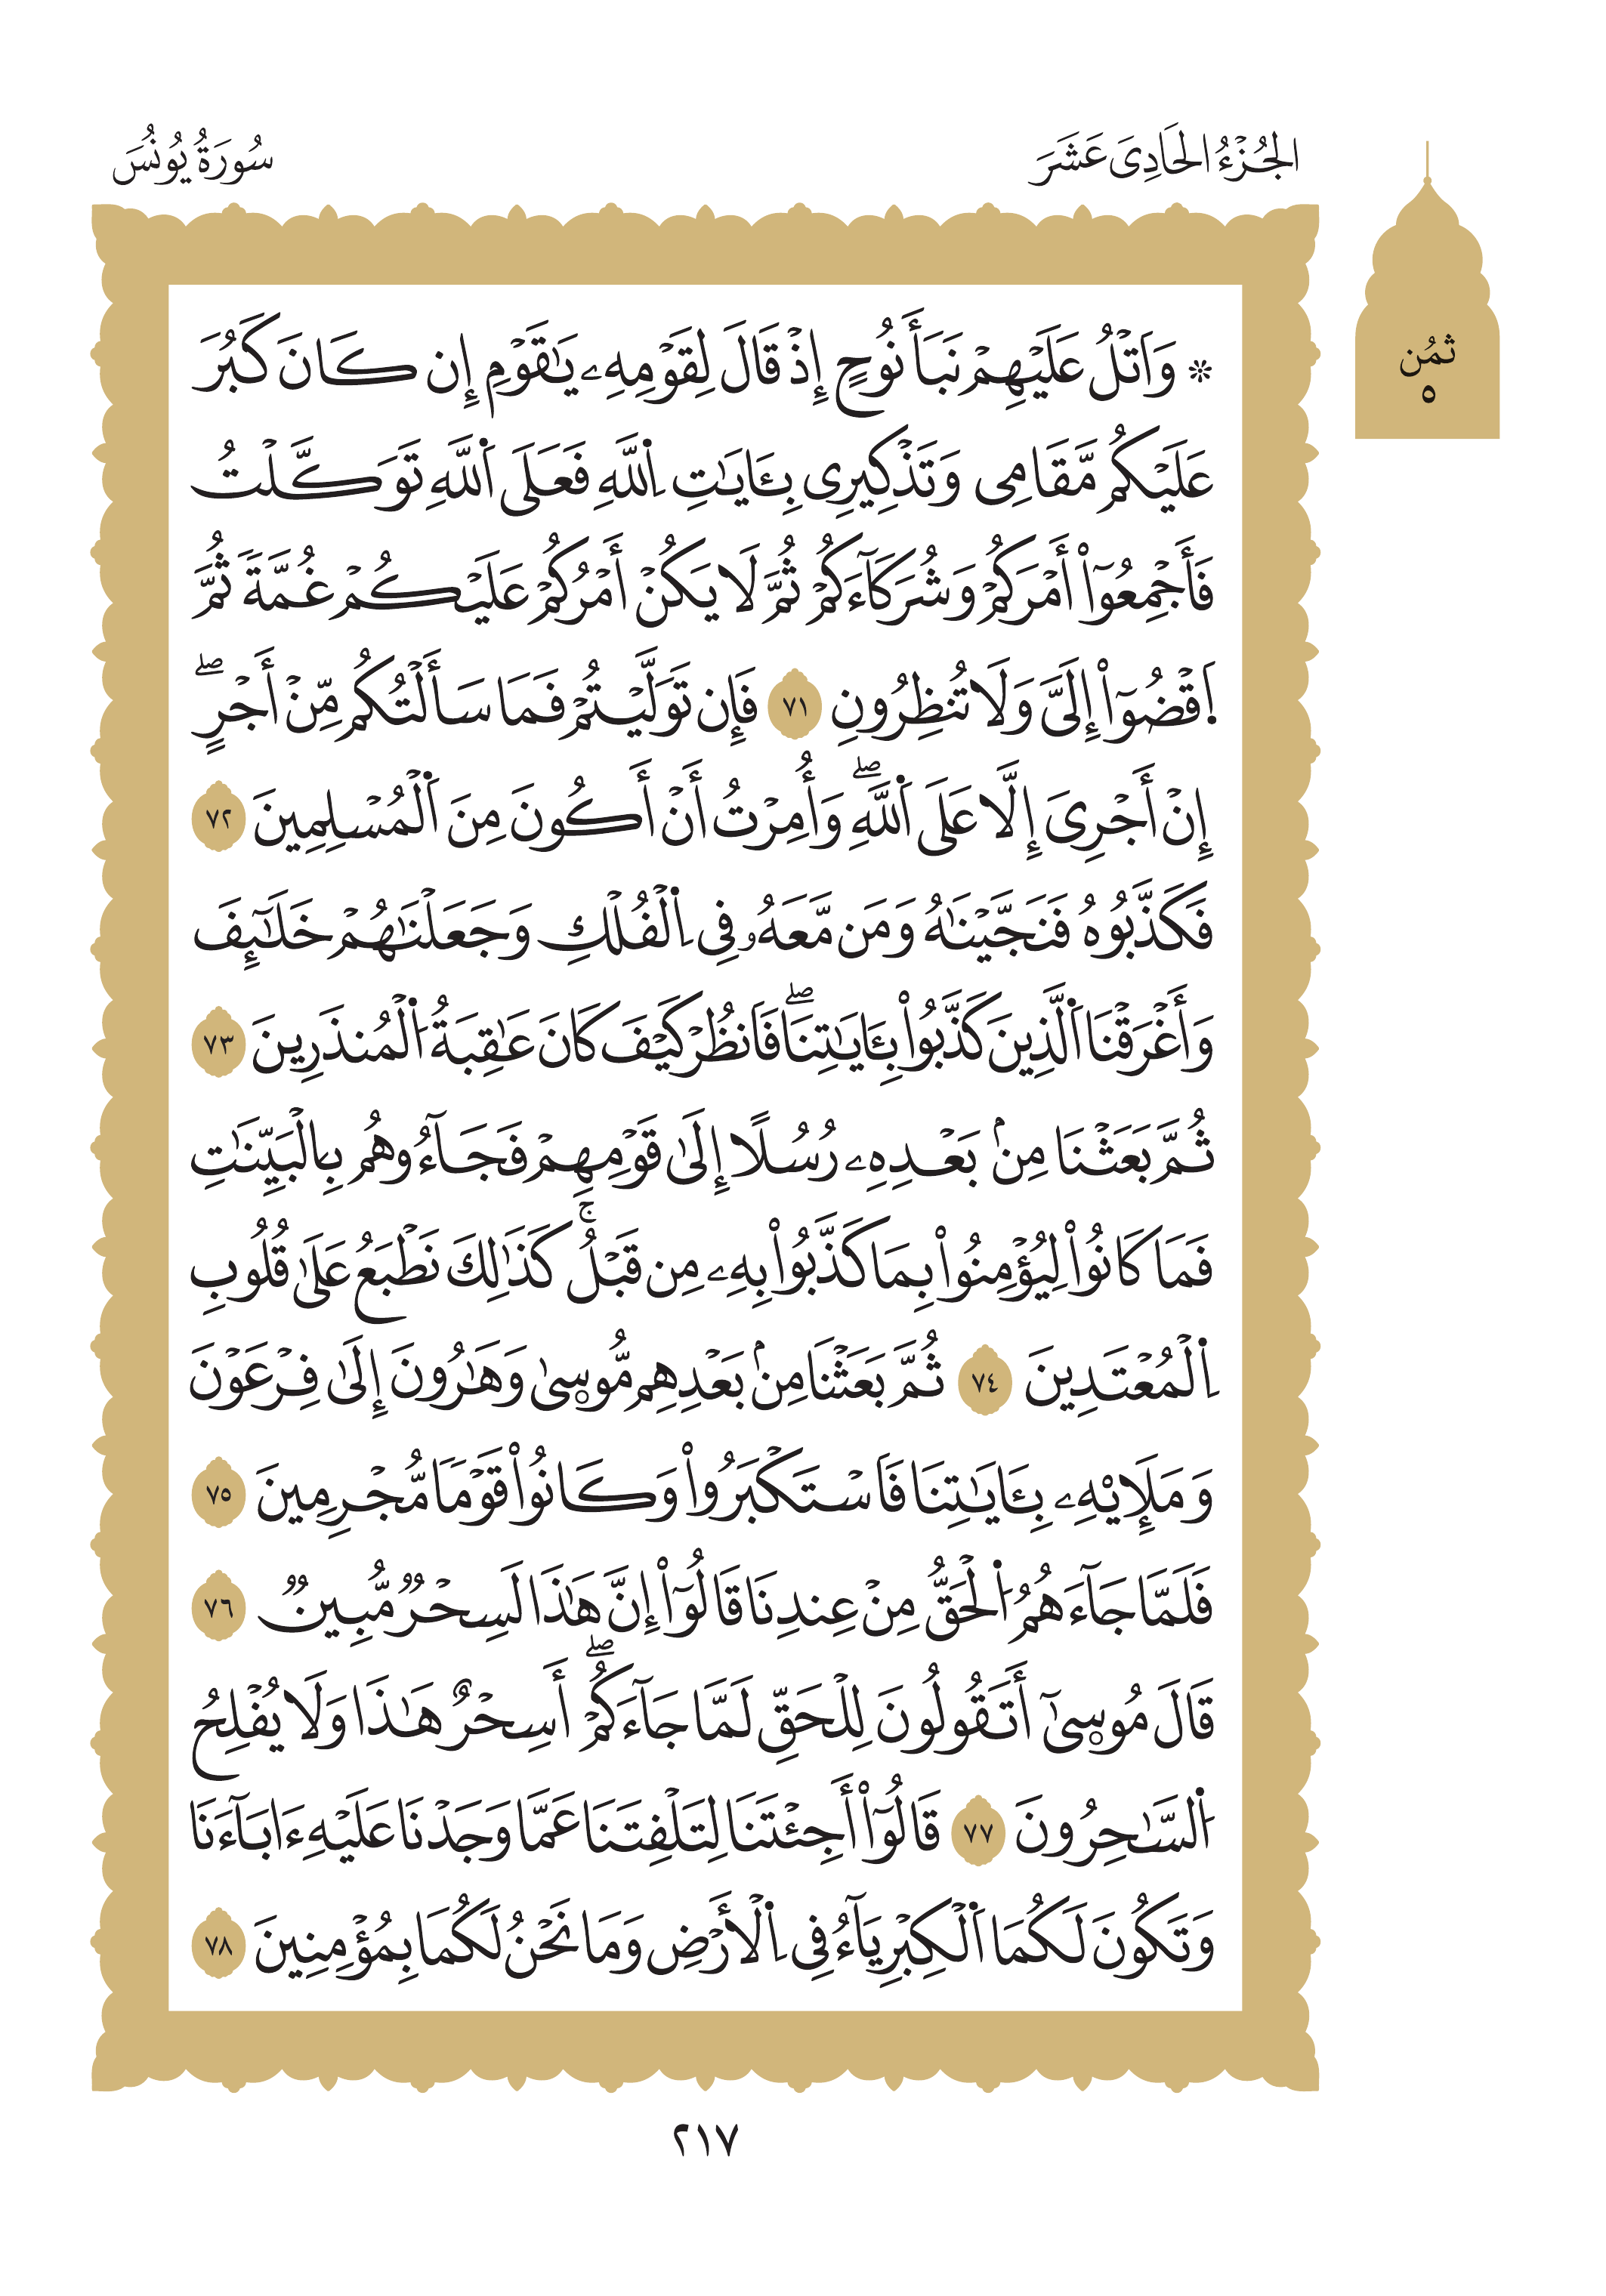 الجُزْءُ الحَادِى عَشَرَ
سُورَةُ يُونُسَ
ثمُن
٥
۞ وَاَتْلُ عَلَيْهِمْ نَبَأَ نُوحٍ إِذْ قَالَ لِقَوْمِهِۦ يَٰقَوْمِ إِن كَانَ كَبُرَ
عَلَيْكُم مَّقَامِى وَتَذْكِيرِى بِـَٔايَٰتِ اِ۬للَّهِ فَعَلَى اَ۬للَّهِ تَوَكَّلْتُ
فَأَجْمِعُوٓاْ أَمْرَكُمْ وَشُرَكَآءَكُمْ ثُمَّ لَا يَكُنْ أَمْرُكُمْ عَلَيْكُمْ غُمَّةً ثُمَّ
اَ۪قْضُوٓاْ إِلَىَّ وَلَا تُنظِرُونِ ٧١ فَإِن تَوَلَّيْتُمْ فَمَا سَأَلْتُكُم مِّنْ أَجْرٍۖ
إِنْ أَجْرِىَ إِلَّا عَلَى اَ۬للَّهِۖ وَأُمِرْتُ أَنْ أَكُونَ مِنَ اَ۬لْمُسْلِمِينَ ٧٢
فَكَذَّبُوهُ فَنَجَّيْنَٰهُ وَمَن مَّعَهُۥ فِى اِ۬لْفُلْكِ وَجَعَلْنَٰهُمْ خَلَٰٓئِفَ
وَأَغْرَقْنَا اَ۬لَّذِينَ كَذَّبُواْ بِـَٔايَٰتِنَاۖ فَاَنظُرْ كَيْفَ كَانَ عَٰقِبَةُ اُ۬لْمُنذَرِينَ ٧٣
ثُمَّ بَعَثْنَا مِنۢ بَعْدِهِۦ رُسُلًا إِلَىٰ قَوْمِهِمْ فَجَآءُوهُم بِالْبَيِّنَٰتِ
فَمَا كَانُواْ لِيُؤْمِنُواْ بِمَا كَذَّبُواْ بِهِۦ مِن قَبْلُۚ كَذَٰلِكَ نَطْبَعُ عَلَىٰ قُلُوبِ
اِ۬لْمُعْتَدِينَ ٧٤ ثُمَّ بَعَثْنَا مِنۢ بَعْدِهِم مُّوسۭىٰ وَهَٰرُونَ إِلَىٰ فِرْعَوْنَ
وَمَلَإِيْهِۦ بِـَٔايَٰتِنَا فَاَسْتَكْبَرُواْ وَكَانُواْ قَوْمًا مُّجْرِمِينَ ٧٥
فَلَمَّا جَآءَهُمُ اُ۬لْحَقُّ مِنْ عِندِنَا قَالُوٓاْ إِنَّ هَٰذَا لَسِحْرٌ مُّبِينٌ ٧٦
قَالَ مُوسۭىٰٓ أَتَقُولُونَ لِلْحَقِّ لَمَّا جَآءَكُمْۖ أَسِحْرٌ هَٰذَا وَلَا يُفْلِحُ
اُ۬لسَّٰحِرُونَ ٧٧ قَالُوٓاْ أَجِئْتَنَا لِتَلْفِتَنَا عَمَّا وَجَدْنَا عَلَيْهِ ءَابَآءَنَا
وَتَكُونَ لَكُمَا اَ۬لْكِبْرِيَآءُ فِى اِ۬لْأَرْضِ وَمَا نَحْنُ لَكُمَا بِمُؤْمِنِينَ ٧٨
٢١٧